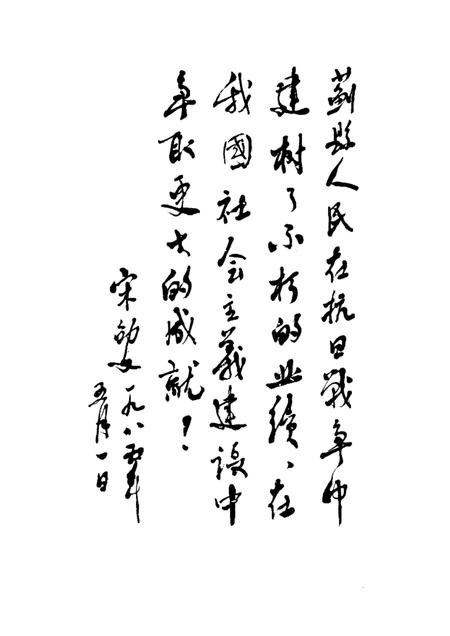 蓟縣人民在抗日戰争中
建树了不朽的业績、在
我國社会主義建设中
争取更大的成就！
宋劭文一九八五年
五月一日